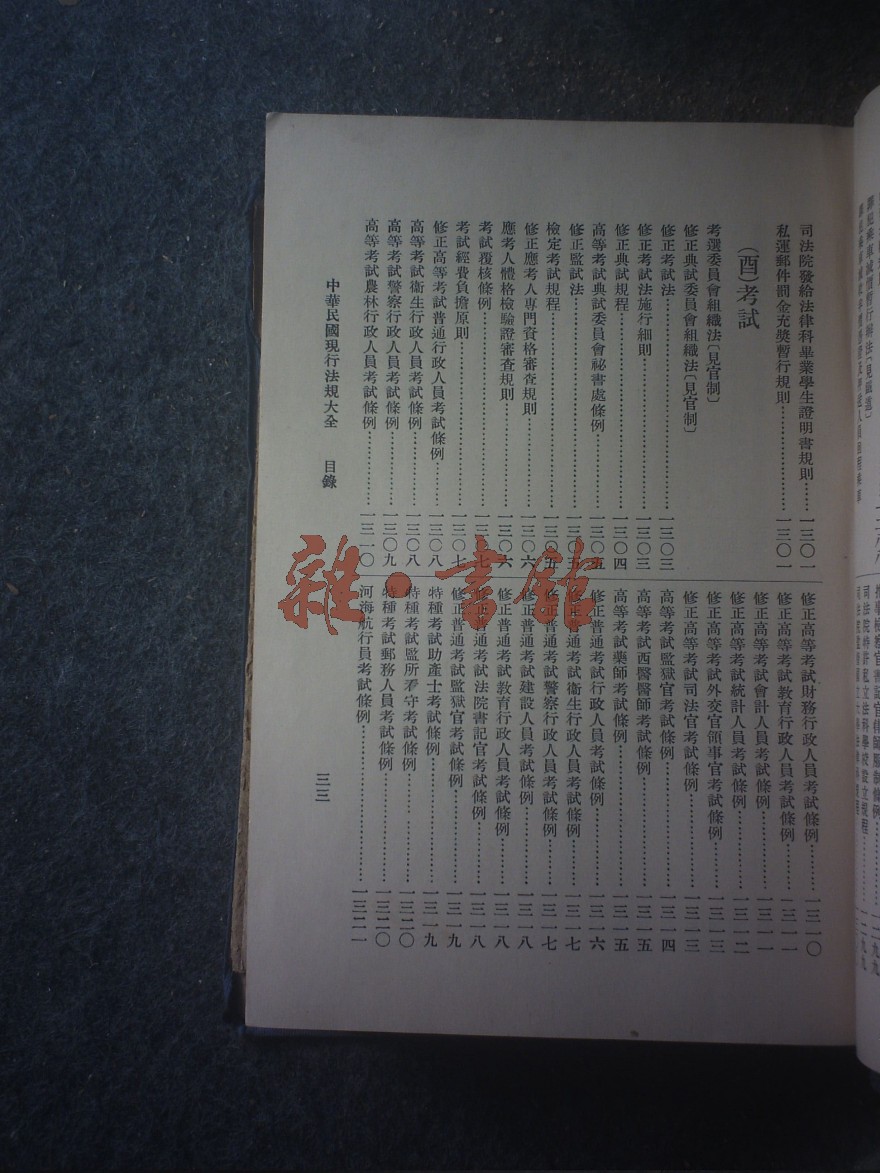 司法院發給法律科畢業學生證明書規則……一三〇一
私運郵件罰金充獎暫行規則……一三〇一
(酉)考試
考選委員會組織法〔見官制〕
修正典試委員會組織法〔見官制〕
修正考試法……一三〇三
修正考試法施行細則……一三〇三
修正典試規程……一三〇四
高等考試典試委員會祕書處條例……一三〇五
修正監試法……一三〇五
檢定考試規程……一三〇五
修正應考人專門資格審查規則……一三〇六
應考人體格檢驗證審查規則……一三〇六
考試覆核條例……一三〇七
考試經費負擔原則……一三〇七
修正高等考試普通行政人員考試條例……一三〇八
高等考試衞生行政人員考試條例……一三〇八
高等考試警察行政人員考試條例……一三〇九
高等考試農林行政人員考試條例……一三一〇
修正高等考試財務行政人員考試條例……一三一〇
修正高等考試教育行政人員考試條例……一三一一
修正高等考試會計人員考試條例……一三一一
修正高等考試統計人員考試條例……一三一二
修正高等考試外交官領事官考試條例……一三一三
修正高等考試司法官考試條例……一三一三
高等考試監獄官考試條例……一三一四
高等考試西醫醫師考試條例……一三一五
高等考試藥師考試條例……一三一五
修正普通考試行政人員考試條例……一三一六
修正普通考試衞生行政人員考試條例……一三一七
修正普通考試警察行政人員考試條例……一三一七
修正普通考試建設人員考試條例……一三一八
修正普通考試教育行政人員考試條例……一三一八
修正普通考試法院書記官考試條例……一三一八
修正普通考試監獄官考試條例……一三一九
特種考試助產士考試條例……一三一九
特種考試監所看守考試條例……一三二〇
特種考試郵務人員考試條例……一三二〇
河海航行員考試條例……一三二一
中華民國現行法規大全 目錄
三三
雜·書館